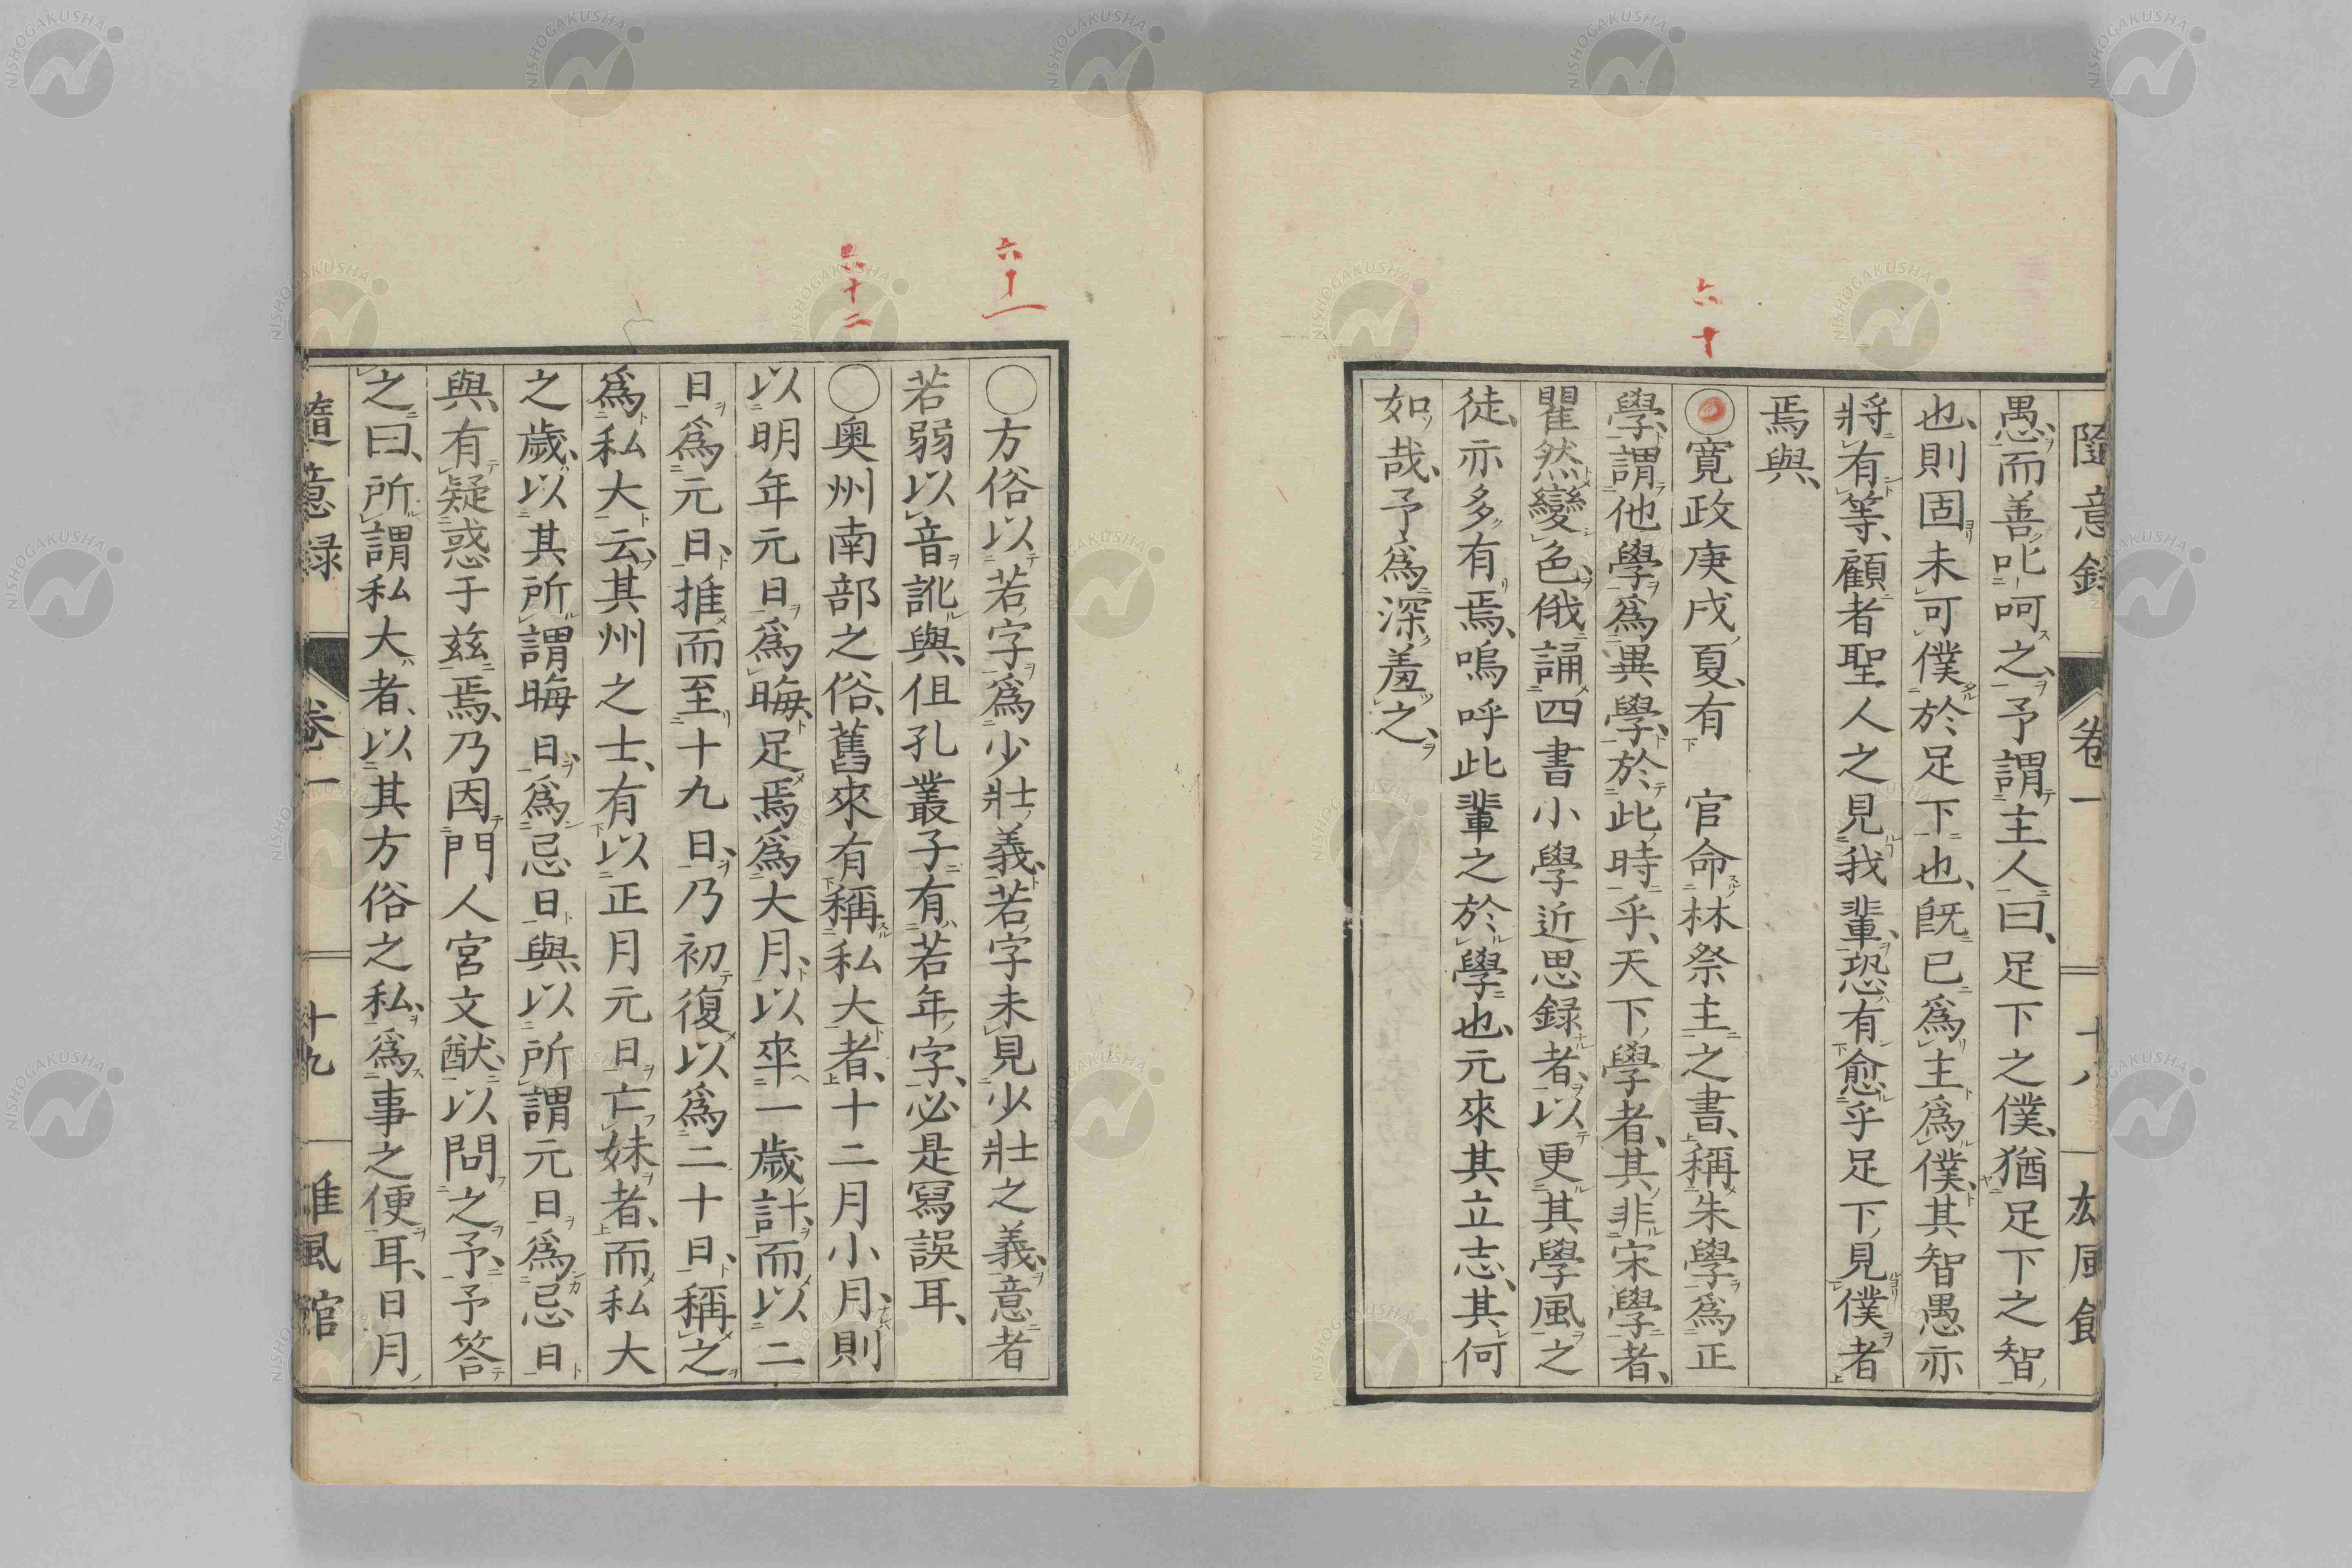 隨意錄 卷一 十八 雄風館
愚、而善叱呵之、予謂主人曰、足下之僕、猶足下之智
也、則固未可僕於足下也、既已爲主爲僕、其智愚亦
將有等、顧者聖人之見我輩、恐有愈乎足下見僕者
焉與、
六十
◯寛政庚戌夏、有 官命林祭主之書、稱朱學爲正
學、謂他學爲異學、於此時乎、天下學者、其非宋學者、
瞿然變色、俄誦四書小學近思錄者、以更其學風之
徒、亦多有焉、嗚呼此輩之於學也、元來其立志、其何
如哉、予爲深羞之、
六十一
◯方俗以若字爲少壯義、若字未見少壯之義、意者
若弱以音訛與、但孔叢子有若年字、必是寫誤耳、
六十二
◯奧州南部之俗、舊來有稱私大者、十二月小月、則
以明年元日爲晦、足焉爲大月、以卒一歲計、而以二
日爲元日、推而至十九日、乃初復以爲二十日、稱之
爲私大云、其州之士、有以正月元日亡妹者、而私大
之歲、以其所謂晦日爲忌日與、以所謂元日爲忌日
與、有疑惑于茲焉、乃因門人宮文猷、以問之予、予答
之曰、所謂私大者、以其方俗之私、爲事之便耳、日月
隨意錄 卷一 十九 雄風館
NISHOGAKUSHA